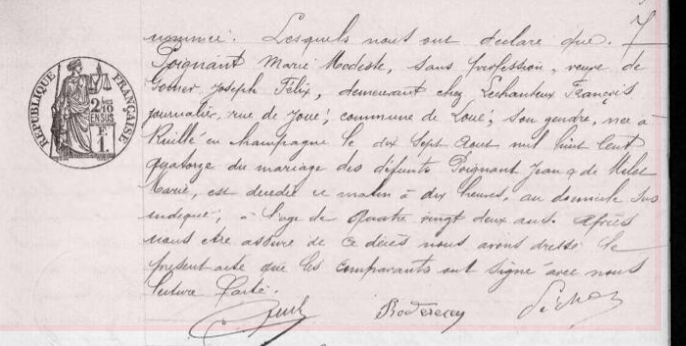 nommée. Lesquels nous ont déclaré que
Poignant Marie Modeste, sans profession, veuve de
Gomer Joseph Félix, demeurant chez Lechanteux François
journalier, rue de Joué, commune de Loué, son gendre, née à
Ruillé en Champagne le dix Sept Aout mil huit cent
quatorze du mariage des défunts Poignant Jean & de
Marie, est décédée ce matin à dix heures, au domicile sus
indiqué, à l'age de Quatre vingt deux ans. Après
nous être assuré de ce décès nous avons dressé le
présent acte que les comparants ont signé avec nous
lecture faite.
RÉPUBLIQUE FRANÇAISE
2/10 EN SUS
F. 1.